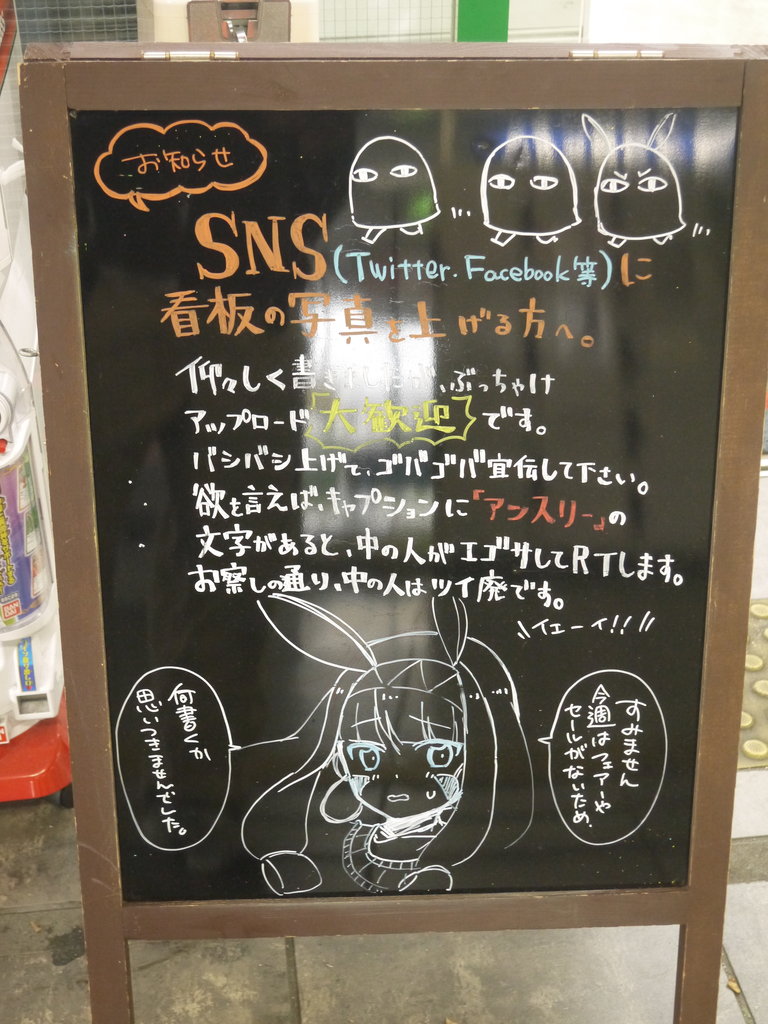 お知らせ
SNS(Twitter.Facebook等)に
看板の写真を上げる方へ。
仰々しく書きましたが、ぶっちゃけ
アップロード「大歓迎」です。
バシバシ上げて、ゴバゴバ宣伝して下さい。
欲を言えば、キャプションに「アンスリー」の
文字があると、中の人がエゴサしてRTします。
お察しの通り、中の人はツイ廃です。
\\イェーイ!!//
すみません
今週はフェアーや
セールがないため、
何書くか
思いつきませんでした。
BANDAI